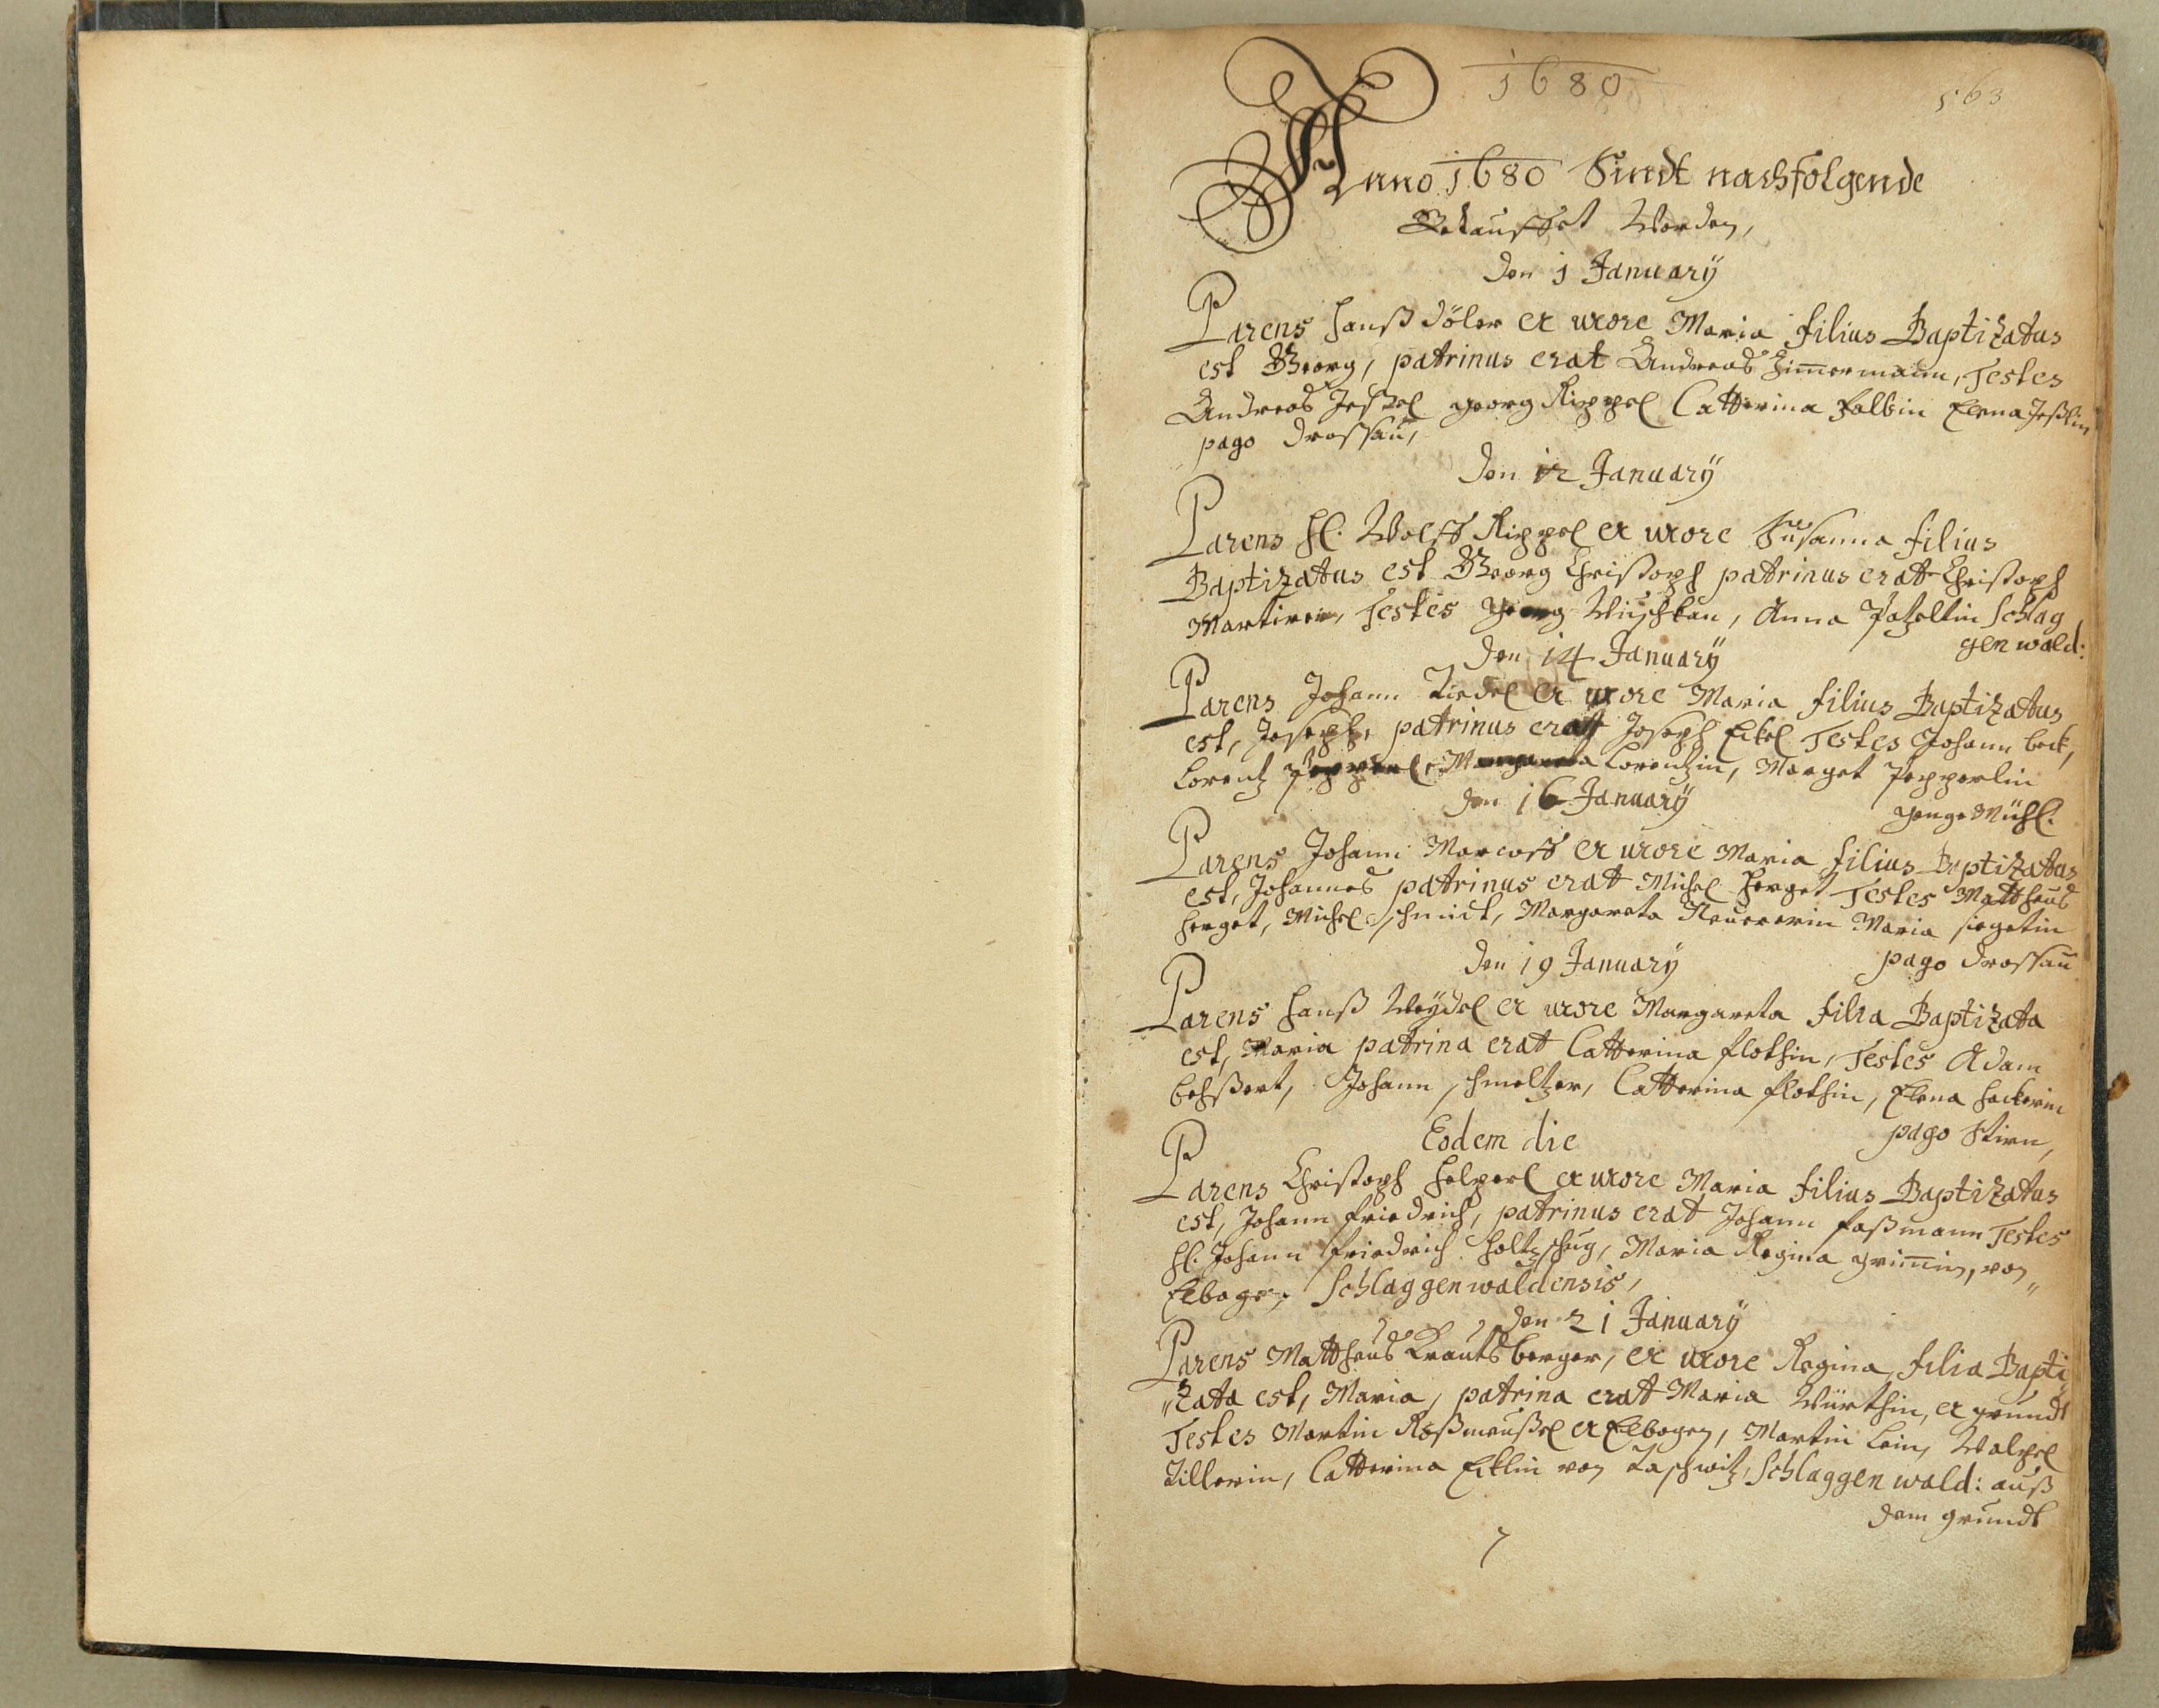 1680
563
Anno 1680 Sindt nachfolgende
Getaufft Worden,
Den 1 January
Parens Hanß Döler ex uxore Maria filius Baptizatus
est Georg, patrinus erat Andreas Zimmermann, Testes
Andreas georg Rippel Catterina Elena
pago Drossau,
Den 12 January
Parens Hl. Wolff Rippel ex uxore Susanna filius
Baptizatus est Georg Christoph patrinus erat Christoph
Testes Georg Anna Patzeltin Schlag
gen wald:
Den 14 January
Parens Johann ex uxore Maria filius Baptizatus
est, Joseph, patrinus erat Joseph Eckel Testes Johann beck,
Lorentz Lorentzin, Marget Pepperlin
Den 16 January
Parens Johann ex uxore Maria filius Baptizatus
est, Johannes patrinus erat Michel Herget Testes Mattheus
Herget, Michel Schmidt, Margareta Maria
pago Drossau
Den 19 January
Parens Hanß Weydel ex uxore Margareta filia Baptizata
est, Maria patrina erat Catterina Testes Adam
Johann Schmeltzer, Catterina Elena Hackerin
pago Stirn,
Eodem die
Parens Christoph ex uxore Maria filius Baptizatus
est, Johann Friedrich, patrinus erat Johann Faßmann Testes
Hl. Johann Friedrich Holtzschug, Maria Regina Grimmin, von
Elbogen, Schlaggenwaldensis,
Den 21 January
Parens Mattheus Krautsberger, ex uxore Regina, filia Bapti
zata est, Maria, patrina erat Maria Würthin, ex grundt
Testes Martin ex Elbogen, Martin
Tillerin, Catterina von Taschwitz, Schlaggen wald: auß
dem grundt